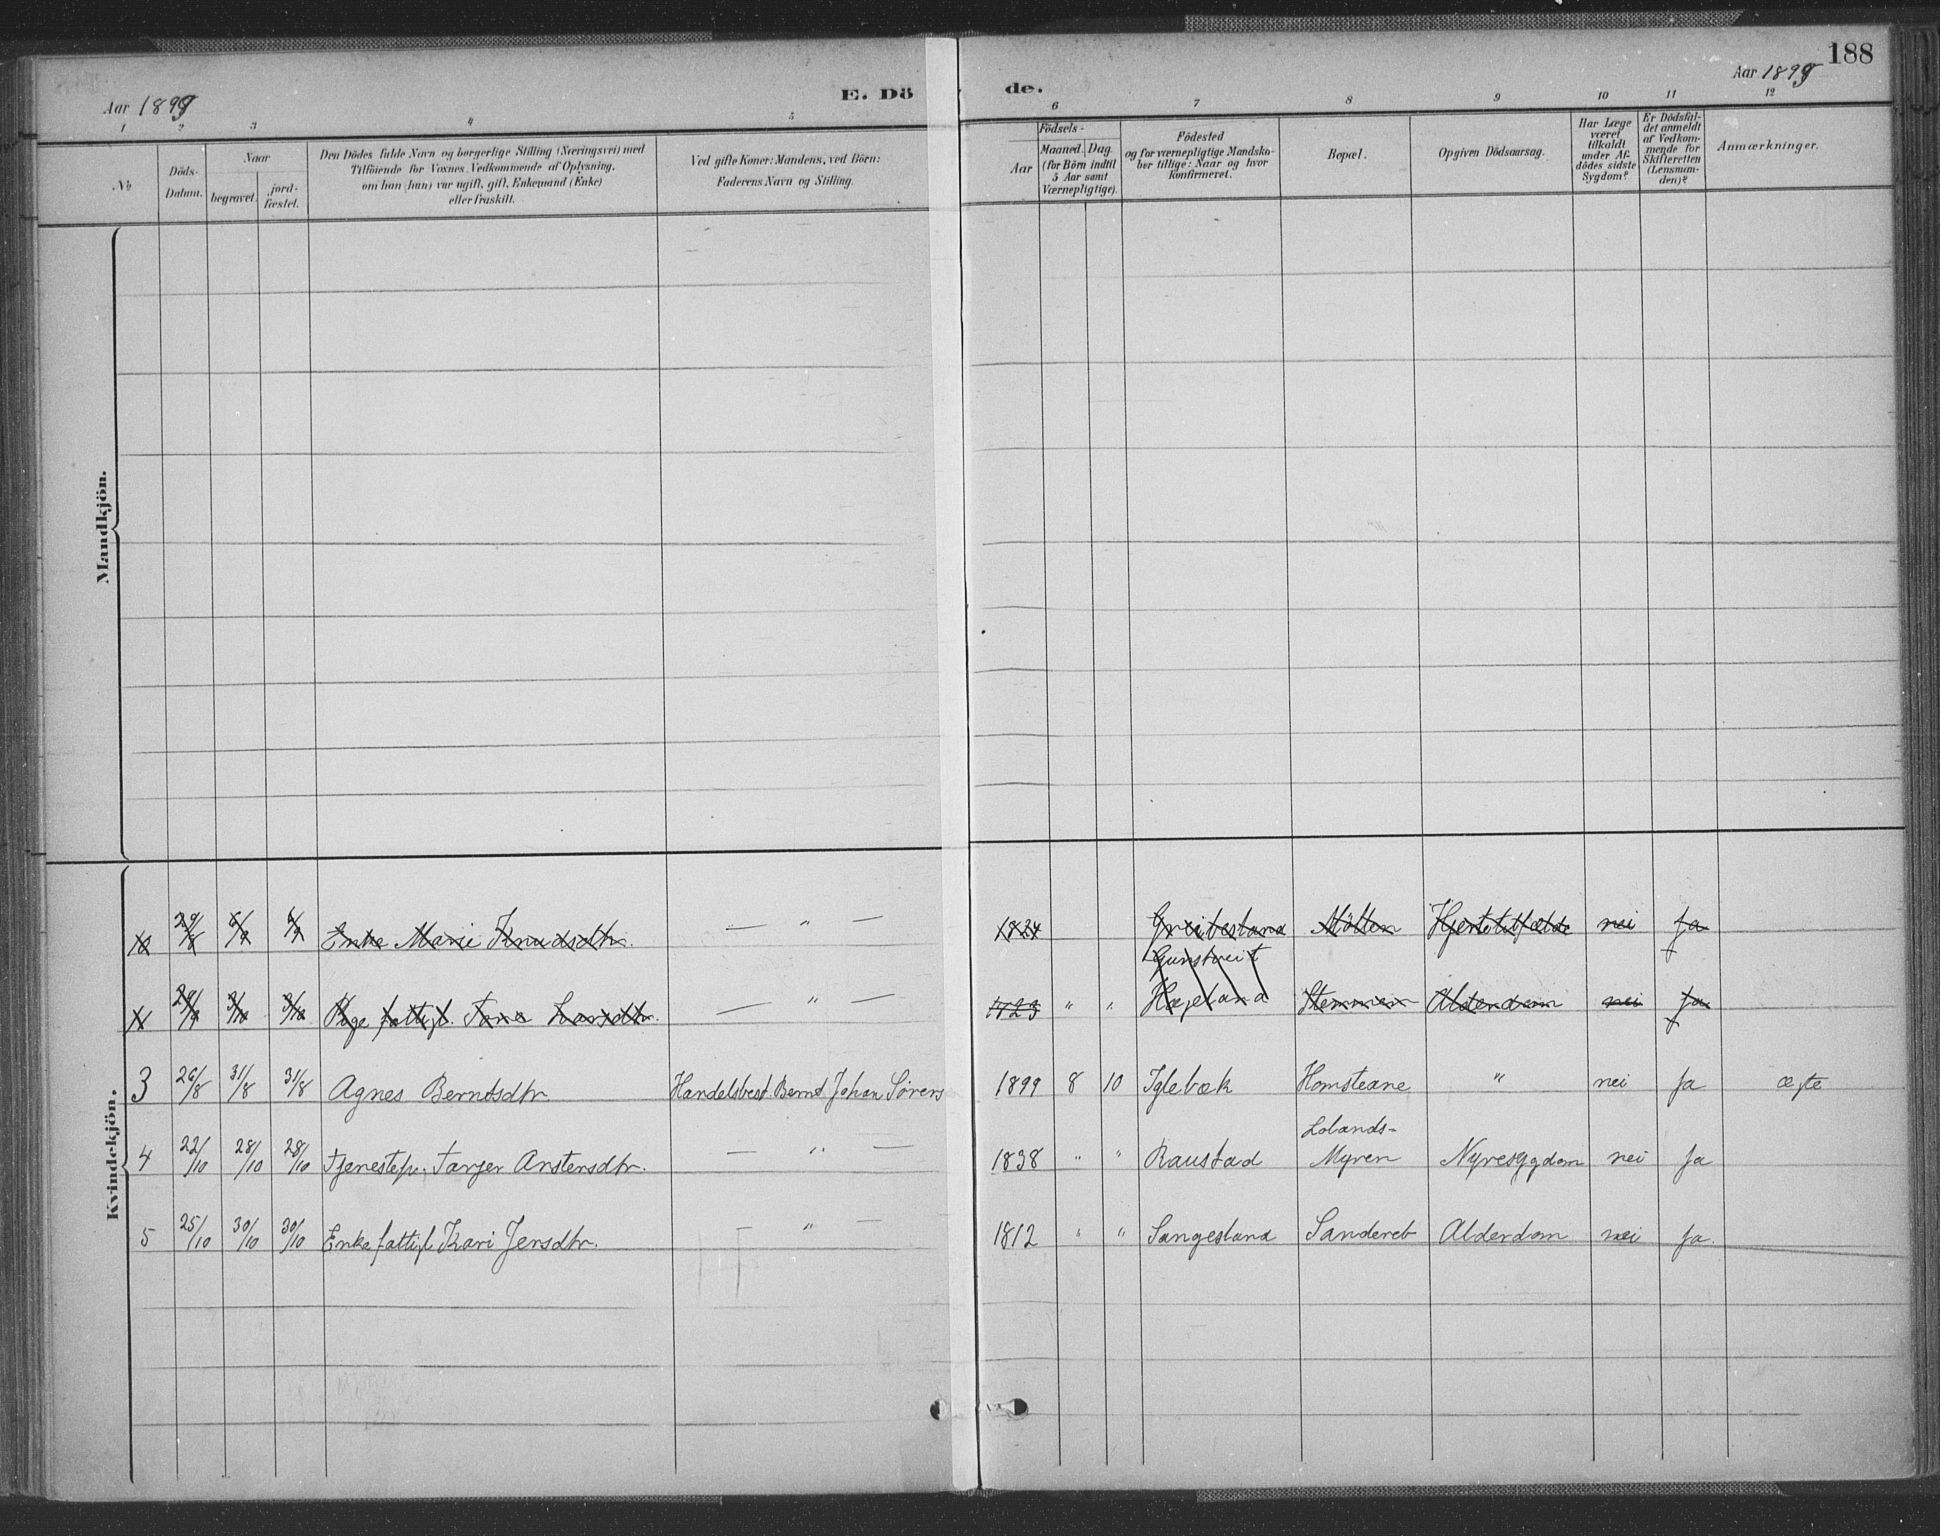 188
Aar 1899
E. Dö
de.
Aar 1899
1 2 3 4 5 6 7 8 9 10 11 12
No
Döds-Datum.
Naar
begravet.
jord-fæstet.
Den Dödes fulde Navn og borgerlige Stilling (Næringsvei) med
Tilföiende for Voxnes Vedkommende af Oplysning,
om han (hun) var ugift, gift, Enkemand (Enke)
eller fraskilt.
Ved gifte Koner: Mandens, ved Börn:
Faderens Navn og Stilling.
Födsels-
Aar
Maaned. Dag.
(for Börn indtil
5 Aar samt
Værnepligtige).
Födested
og for værnepligtige Mandsko-
ber tillige: Naar og hvor
konfirmeret.
Bopæl.
Opgiven Dödsaarsag.
Har Læge
været
tilkaldt
under Af-
dödes sidste
Sygdom?
Er Dödsfal-
det anmeldt
af Vedkom-
mende for
Skifteretten
(Lensman-
den)?
Anmærkninger.
Mandkjön.
Kvindekjön.
29/8 Enke Marie Knudsdtr. — " — 1824 Greibesland Mölten nei Ja
Gunstveit
3/10 3/10 fattigl. Larsdtr. — " — 1823 " " Hægeland Stemmen Alderdom nei Ja
3 26/8 31/8 31/8 Agnes Berntsdtr Handelsbest. Bernt Johan Sörens 1899 8 10 Iglebæk Homsteane " nei Ja ægte
Lolands-
4 22/10 28/10 28/10 Tjenestep. Tarjer Anstensdtr. — " — 1838 " " Raustad Myren Nyresygdom nei Ja
5 25/10 30/10 30/10 Enke fattigl Kari Jensdtr. — " — 1812 " " Sangesland Sanderet Alderdom nei Ja.